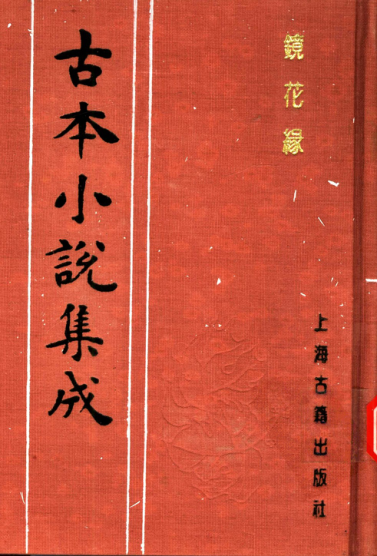 鏡花緣
上海古籍出版社
古本小說集成